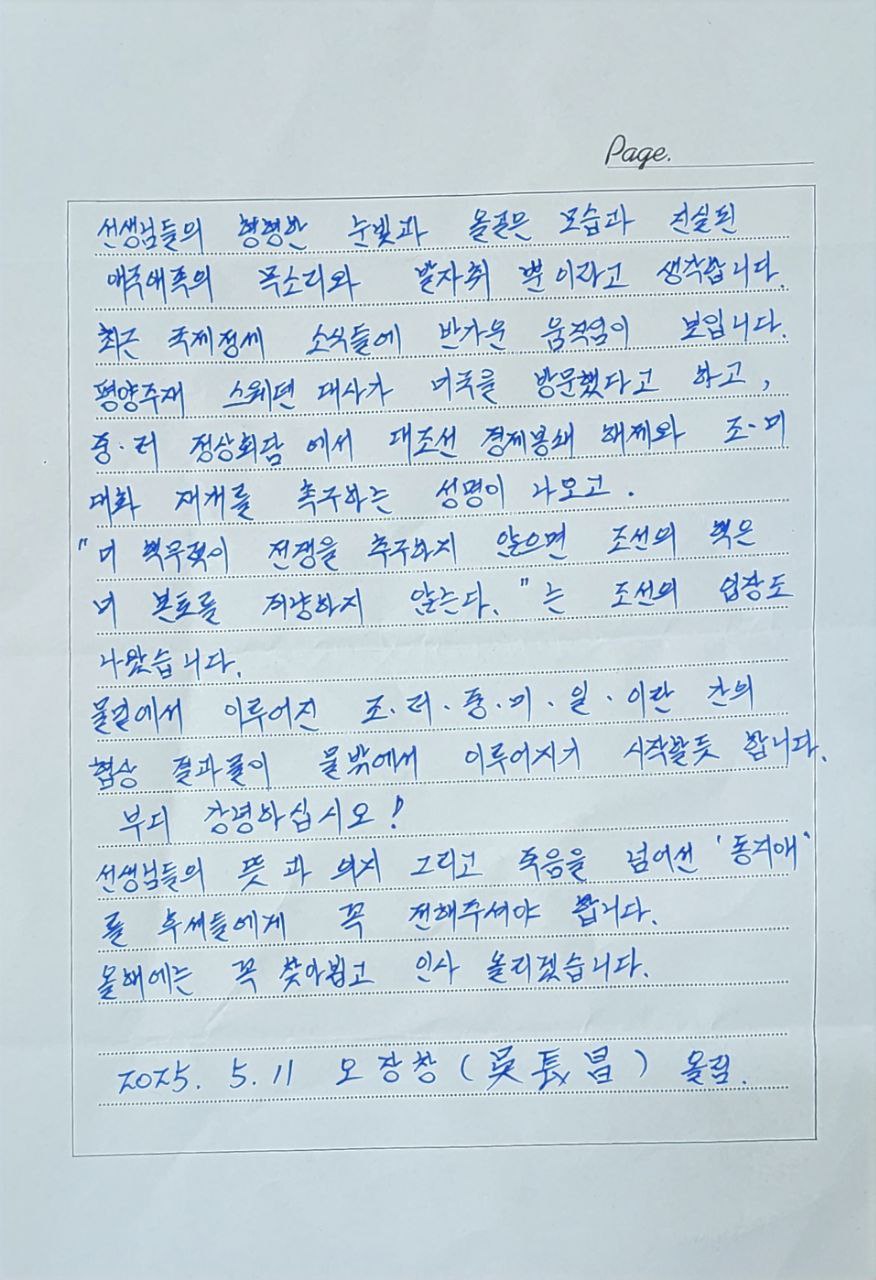 Page.
선생님들의 형형한 눈빛과 올곧은 모습과 진실된
애국애족의 목소리와 발자취 뿐이라고 생각합니다.
최근 국제정세 소식들에 반가운 움직임이 보입니다.
평양주재 스웨덴 대사가 미국을 방문했다고 하고,
중·러 정상회담에서 대조선 경제봉쇄 해제와 조·미
대화 재개를 촉구하는 성명이 나오고.
"미 백무력이 전쟁을 추구하지 않으면 조선의 핵은
미 본토를 겨냥하지 않는다."는 조선의 입장도
나왔습니다.
물밑에서 이루어진 조·러·중·미·일·이란 간의
협상 결과물이 물밖에서 이루어지기 시작할듯 합니다.
부디 강녕하십시오!
선생님들의 뜻과 의지 그리고 죽음을 넘어선 '동지애'
를 후세들에게 꼭 전해주셔야 합니다.
올해에는 꼭 찾아뵙고 인사 올리겠습니다.
2025. 5. 11 오장창(吳長昌) 올림.